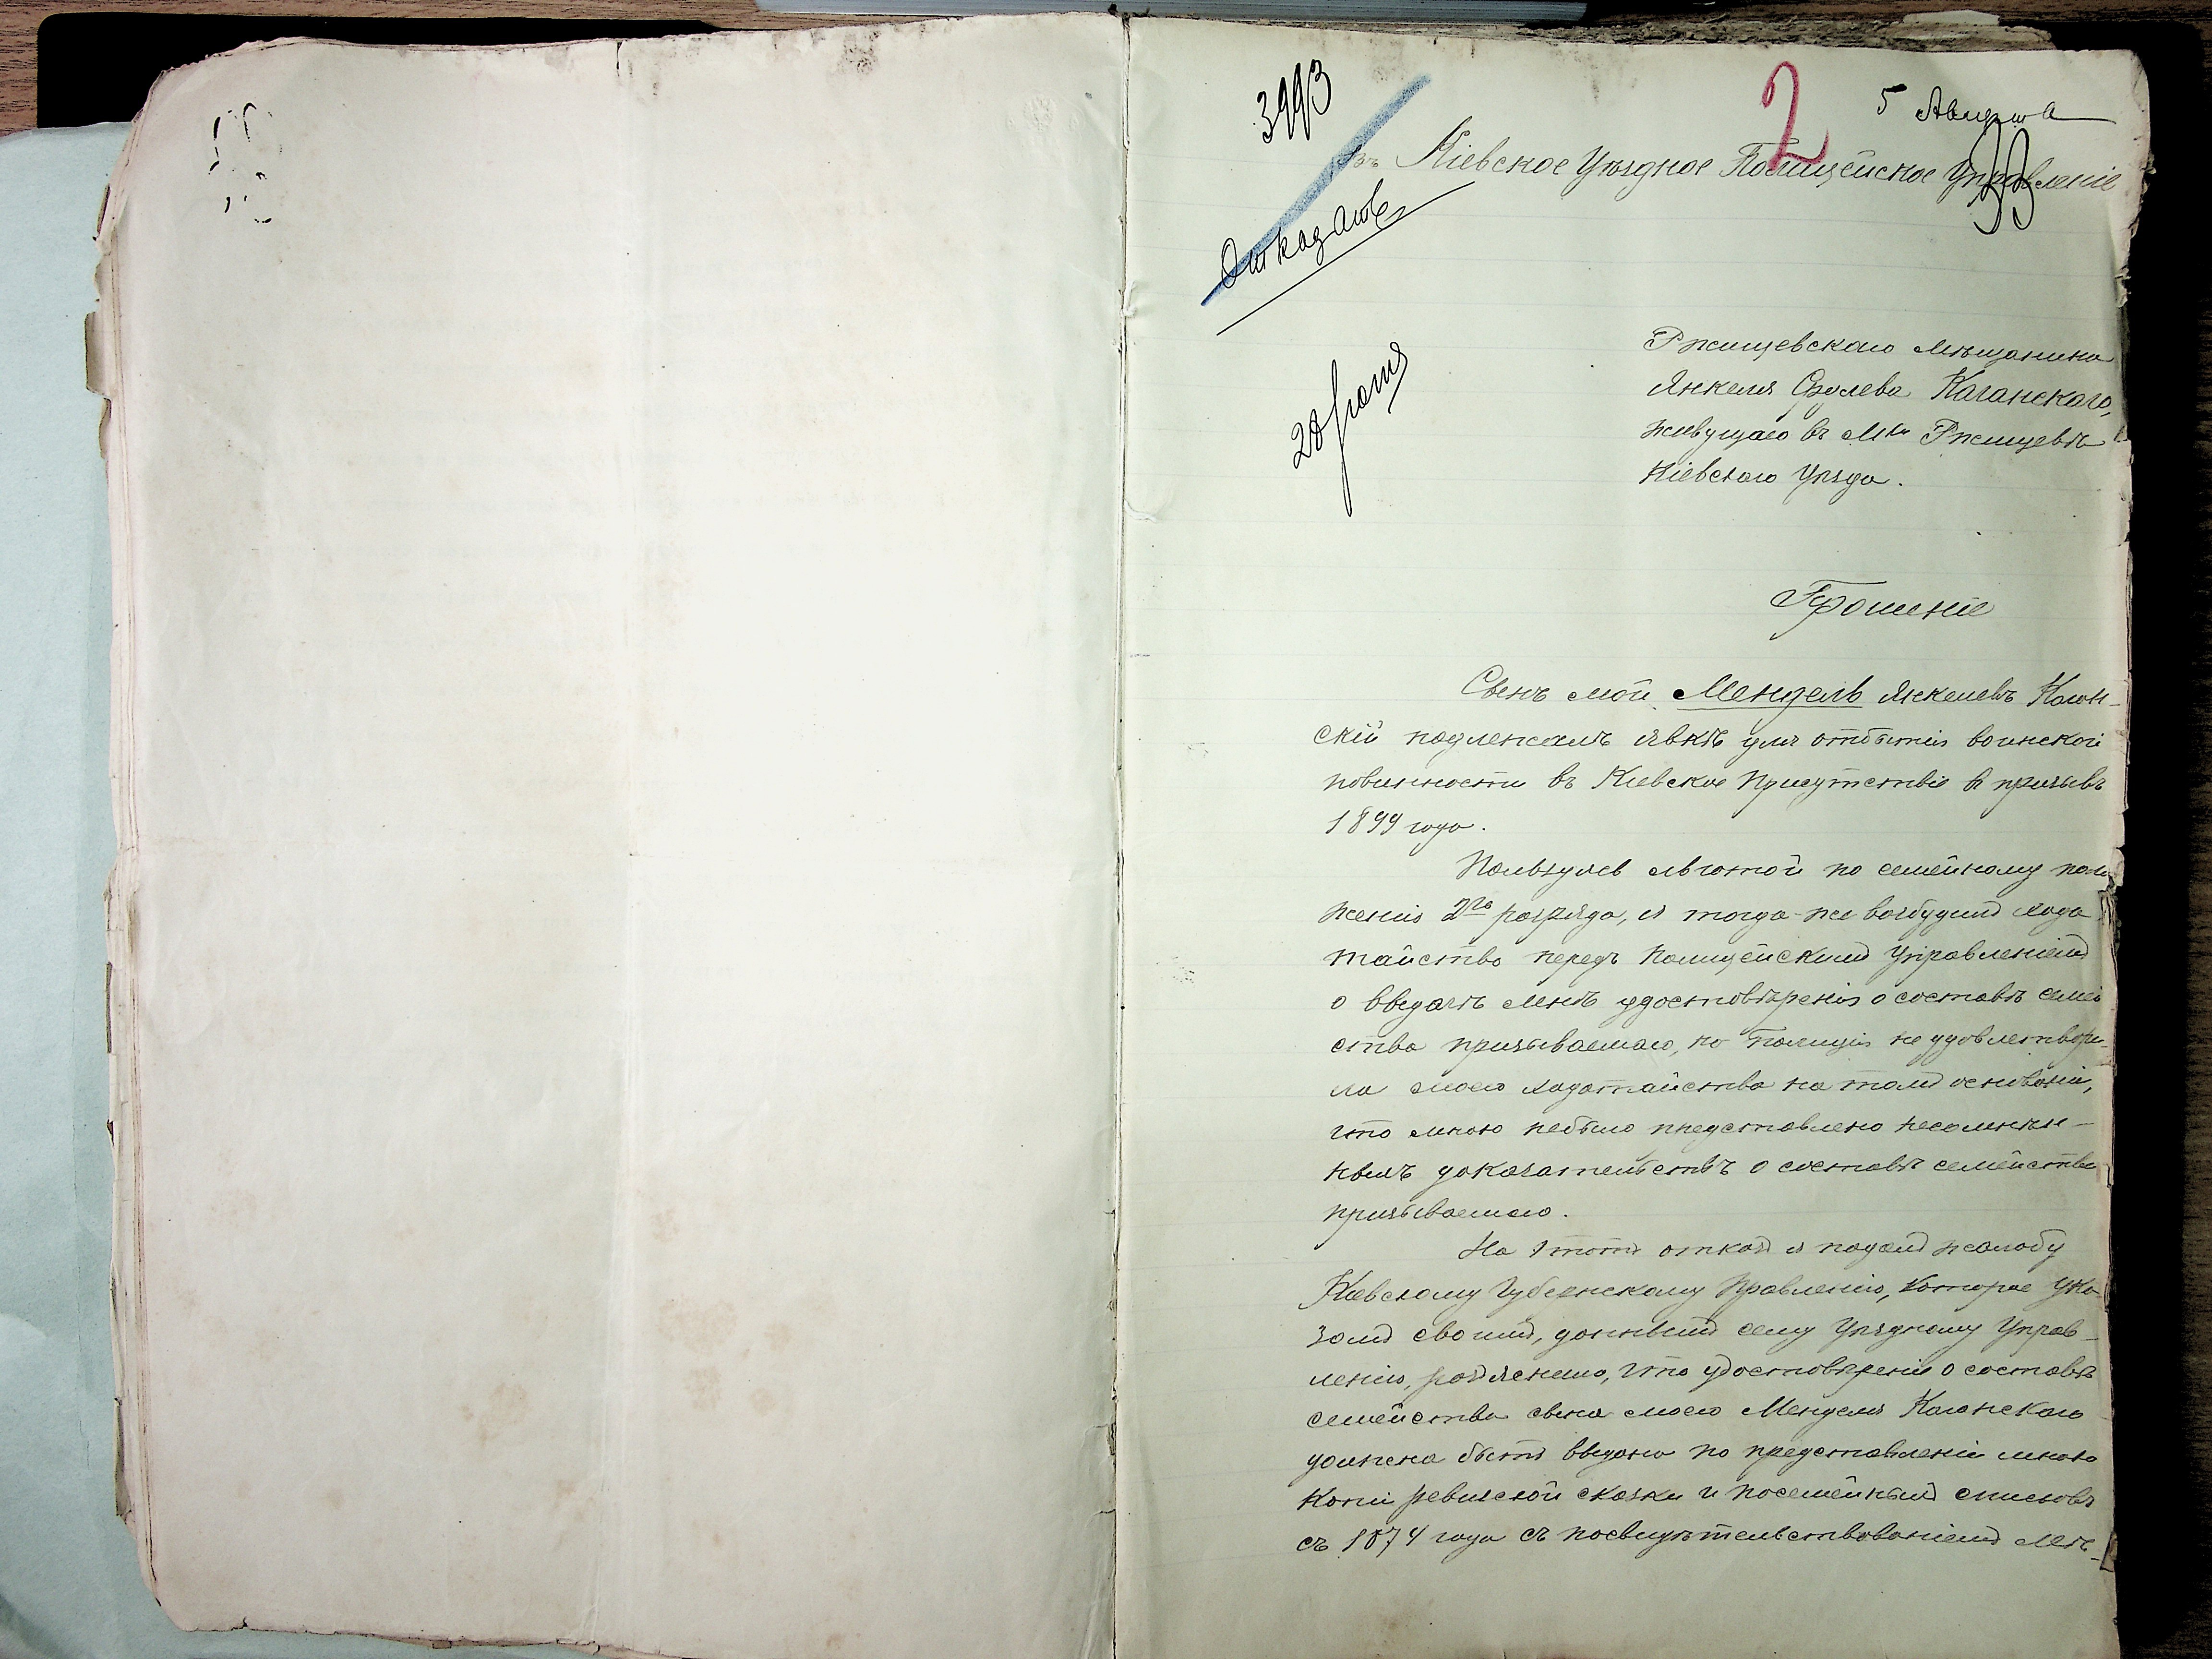 3993
2
5 Августа
Въ Кіевское Уѣздное Полицейское Управленіе
Отказать
Ржищевскаго мѣщанина
Янкеля Сролева Каганскаго,
живущаго въ Мкѣ Ржищевѣ
Кіевскаго Уѣзда.
Прошеніе
Сынъ мой, Мендель Янкелевъ Каган-
скій подлежалъ явкѣ для отбытія воинской
повинности въ Кіевское Присутствіе въ призывъ
1899 года.
Пользуясь льготой по семейному поло
женію 2го разряда, я тогда-же возбудилъ хода
тайство передъ Полицейскимъ Управленіемъ
о выдачѣ мнѣ удостовѣренія о составѣ семей
ства призываемаго, но Полиція не удовлетвори-
ла моего ходатайства на томъ основаніи,
что мною небыло представлено несомнѣн-
ныхъ доказательствъ о составѣ семейства
призываемаго.
На этотъ отказъ я подалъ жалобу
Кіевскому Губернскому Правленію, которое ука-
зомъ своимъ, даннымъ сему Уѣздному Управ-
ленію, разъяснило, что удостовѣреніе о составѣ
семейства сына моего Менделя Каганскаго
должна быть выдано по представленіи мною
копіи ревизской сказки и посемейныхъ списковъ
съ 1874 года съ посвидѣтельствованіемъ Мѣ-